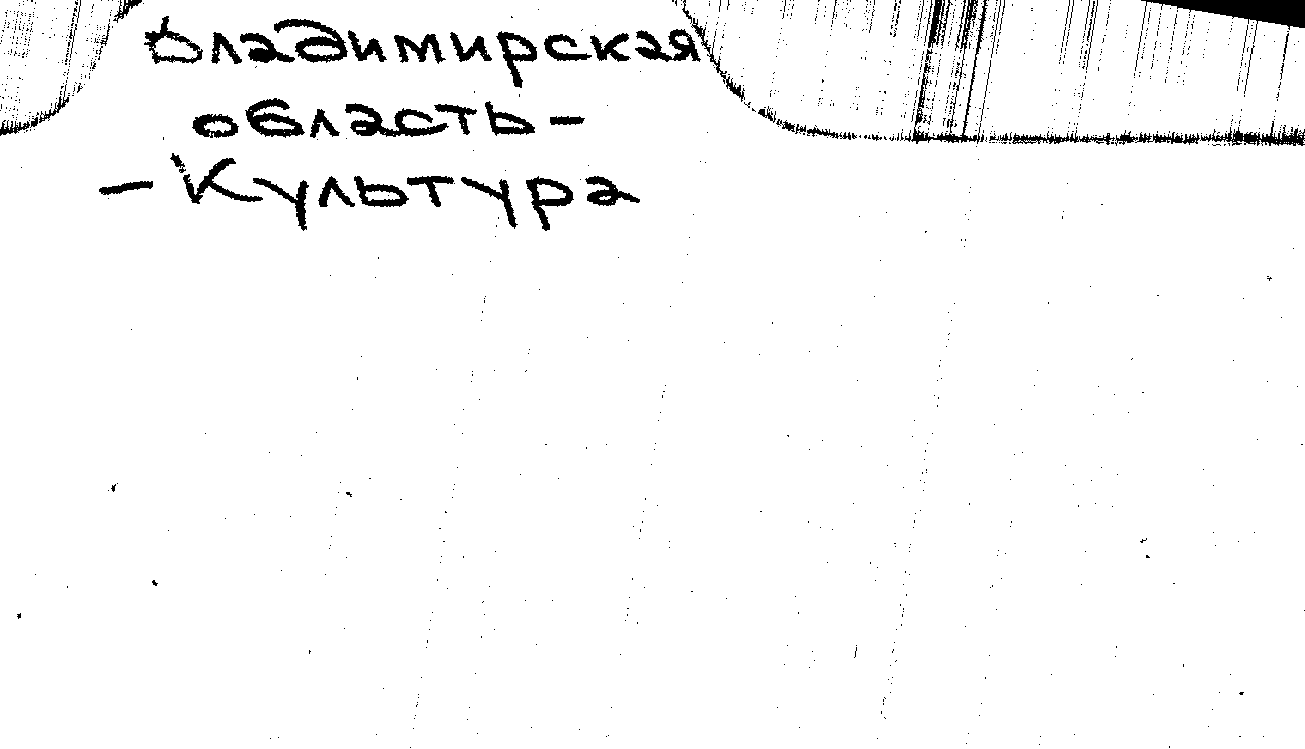 Владимирская
область -
- Культура